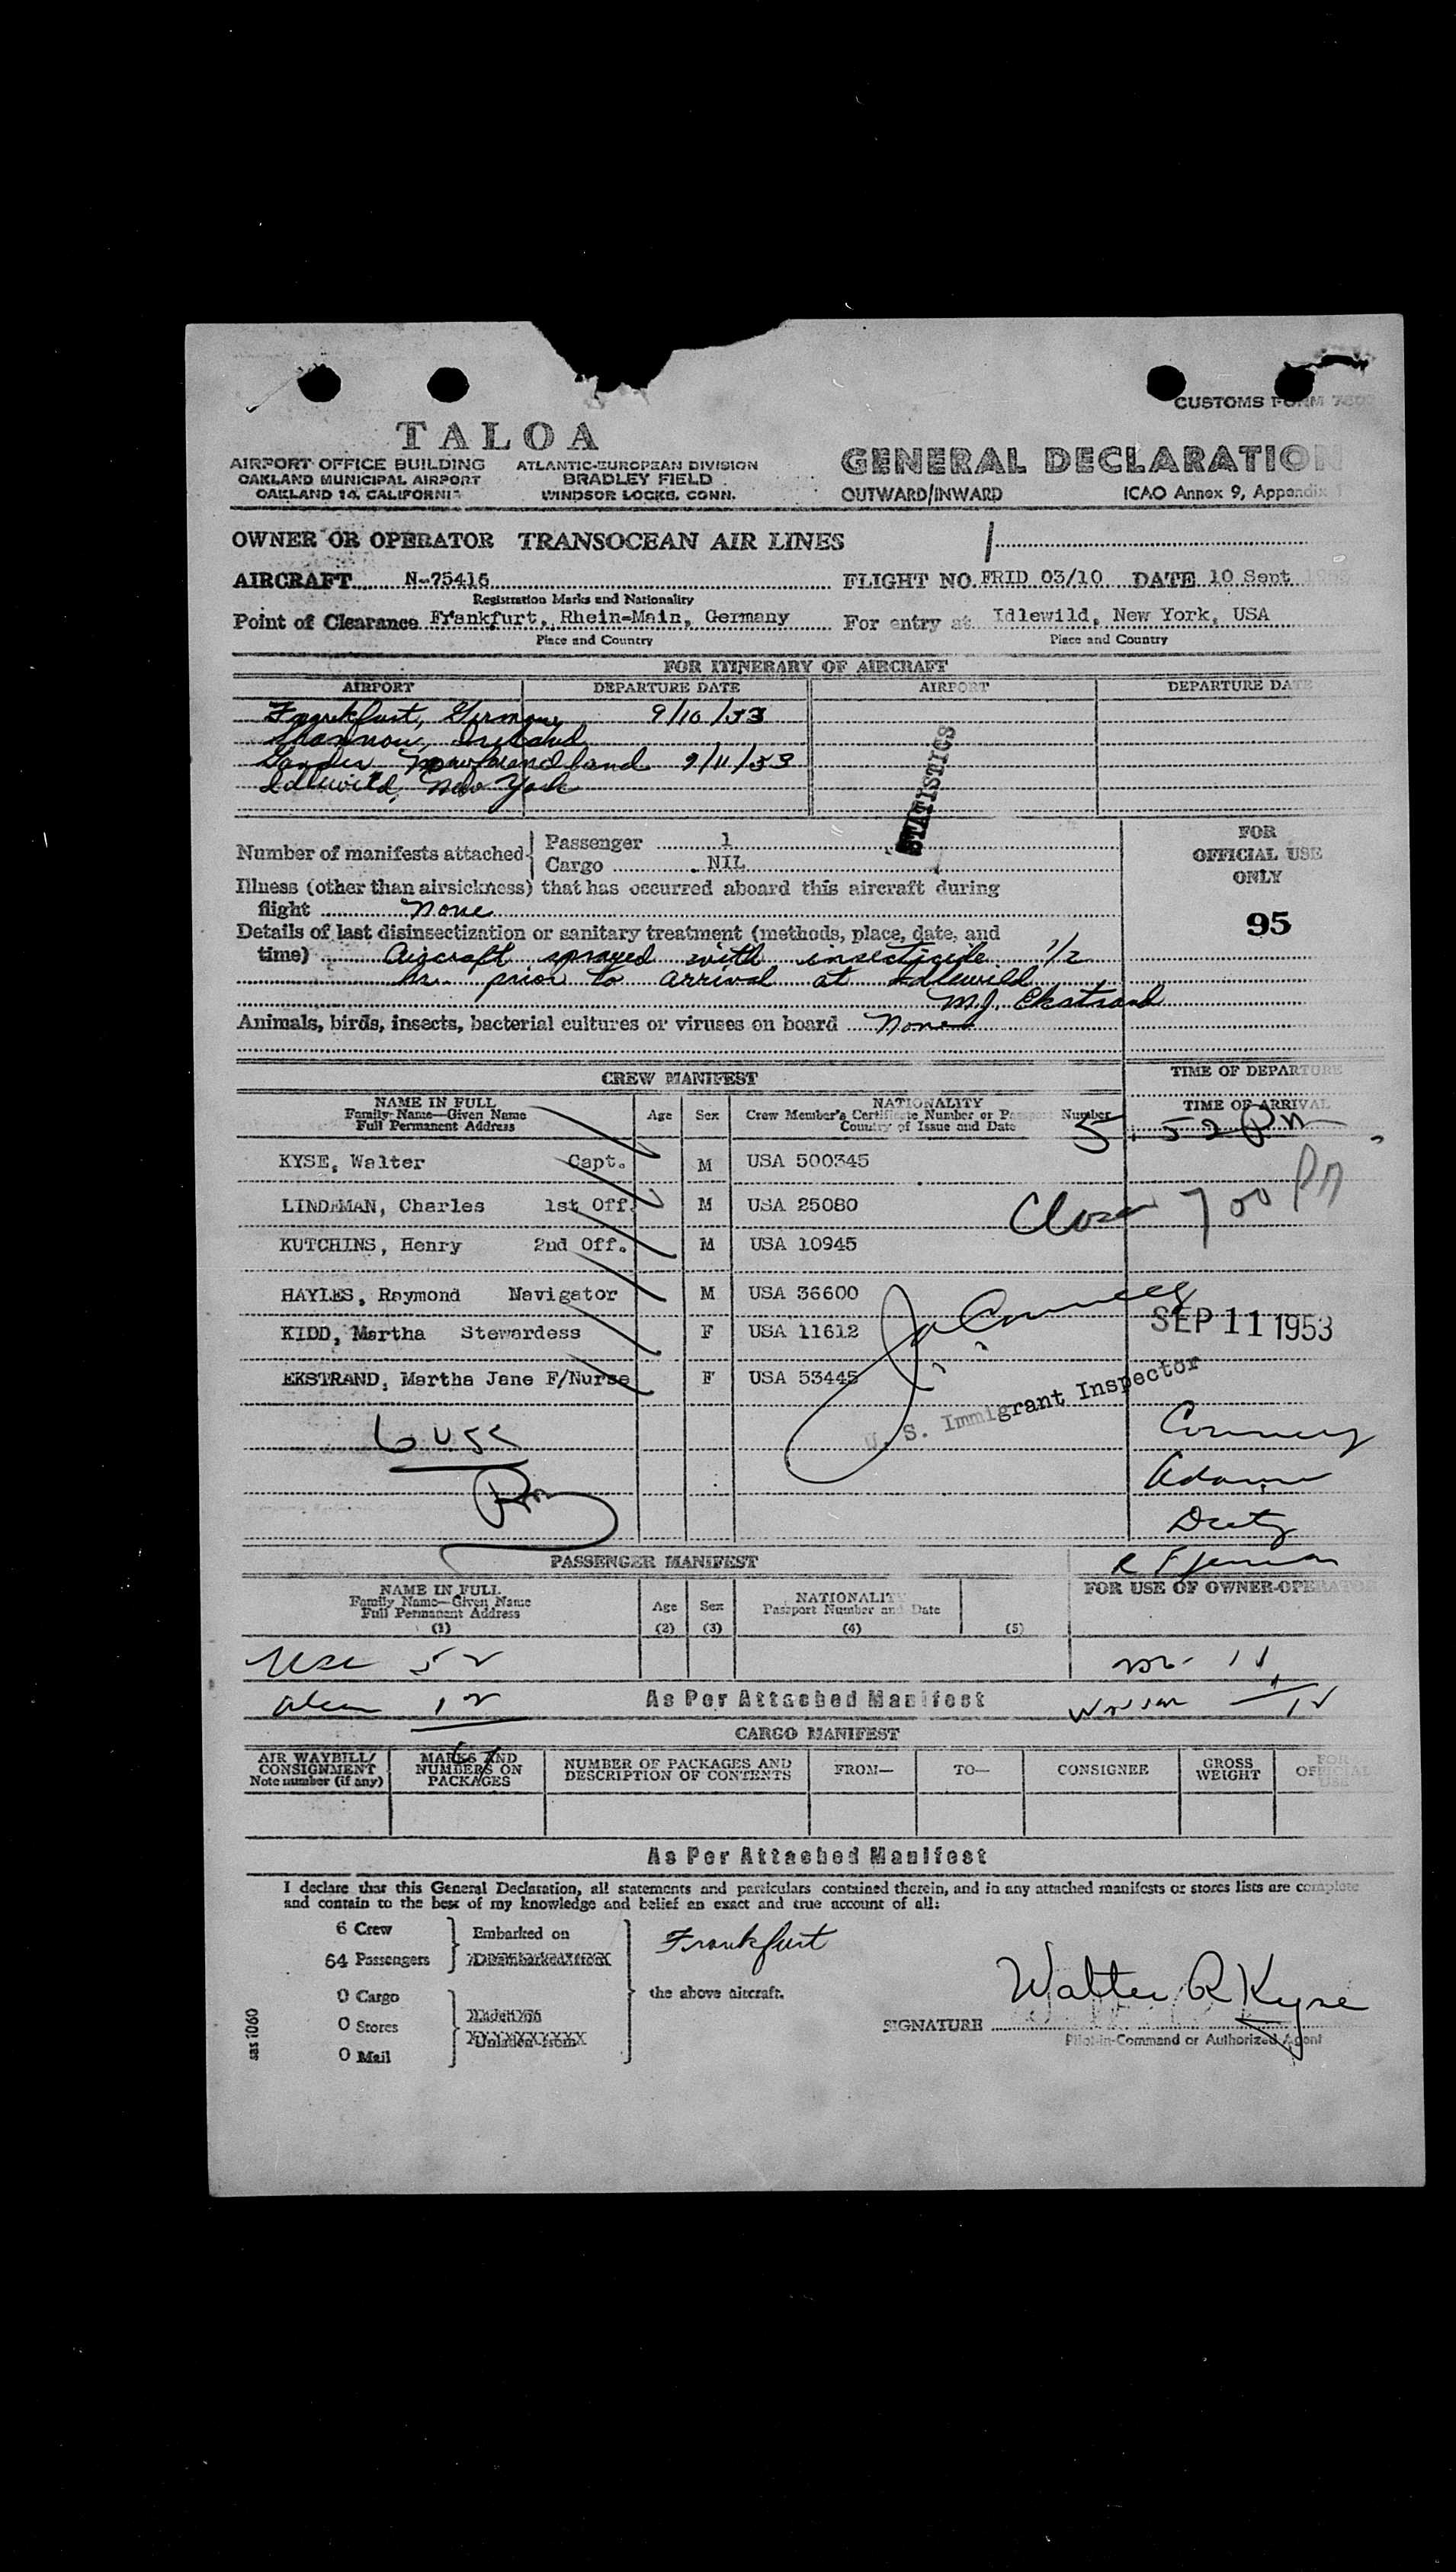 CUSTOMS FORM 750
TALOA
AIRPORT OFFICE BUILDING
OAKLAND MUNICIPAL AIRPORT
OAKLAND 14, CALIFORNIA
ATLANTIC-EUROPEAN DIVISION
BRADLEY FIELD
WINDSOR LOCKS, CONN.
GENERAL DECLARATION
OUTWARD/INWARD ICAO Annex 9, Appendix 1
OWNER OR OPERATOR TRANSOCEAN AIR LINES
AIRCRAFT N-75416 FLIGHT NO. FRID 03/10 DATE 10 Sept
Registration Marks and Nationality
Point of Clearance Frankfurt, Rhein-Main, Germany For entry at Idlewild, New York, USA
Place and Country Place and Country
FOR ITINERARY OF AIRCRAFT
AIRPORT DEPARTURE DATE AIRPORT DEPARTURE DATE
Frankfurt, Germany 9/10/53
Shannon, Ireland
Gander, Newfoundland 9/11/53
Idlewild, New York
STATISTICS
Number of manifests attached
Passenger 1
Cargo NIL
FOR
OFFICIAL USE
ONLY
95
Illness (other than airsickness) that has occurred aboard this aircraft during
flight None
Details of last disinsectization or sanitary treatment (methods, place, date, and
time) Aircraft sprayed with insecticide 1/2
hr. prior to arrival at Idlewild
M.J. Ekstrand
Animals, birds, insects, bacterial cultures or viruses on board None
CREW MANIFEST
TIME OF DEPARTURE
TIME OF ARRIVAL
5:52 PM
NAME IN FULL
Family Name—Given Name
Full Permanent Address
Age Sex
NATIONALITY
Crew Member's Certificate Number or Passport Number
Country of Issue and Date
KYSE, Walter Capt. M USA 500345
LINDEMAN, Charles 1st Off. M USA 25080
Close 7 00 PM
KUTCHINS, Henry 2nd Off. M USA 10945
HAYLES, Raymond Navigator M USA 36600
KIDD, Martha Stewardess F USA 11612
SEP 11 1953
EKSTRAND, Martha Jane F/Nurse F USA 53445
U. S. Immigrant Inspector
6 USC
PASSENGER MANIFEST
NAME IN FULL
Family Name—Given Name
Full Permanent Address
(1)
Age
(2)
Sex
(3)
NATIONALITY
Passport Number and Date
(4)
(5)
FOR USE OF OWNER-OPERATOR
USC 52
Alien 12
As Per Attached Manifest
CARGO MANIFEST
AIR WAYBILL/
CONSIGNMENT
Note number (if any)
MARKS AND
NUMBERS ON
PACKAGES
NUMBER OF PACKAGES AND
DESCRIPTION OF CONTENTS
FROM—
TO—
CONSIGNEE
GROSS
WEIGHT
FOR
OFFICIAL
USE
As Per Attached Manifest
I declare that this General Declaration, all statements and particulars contained therein, and in any attached manifests or stores lists are complete
and contain to the best of my knowledge and belief an exact and true account of all:
6 Crew
64 Passengers
Embarked on
Disembarked from
Frankfurt
0 Cargo
0 Stores
0 Mail
Laden on
Unladen from
the above aircraft.
Walter R Kyse
SIGNATURE
Pilot-in-Command or Authorized Agent
sas 1060